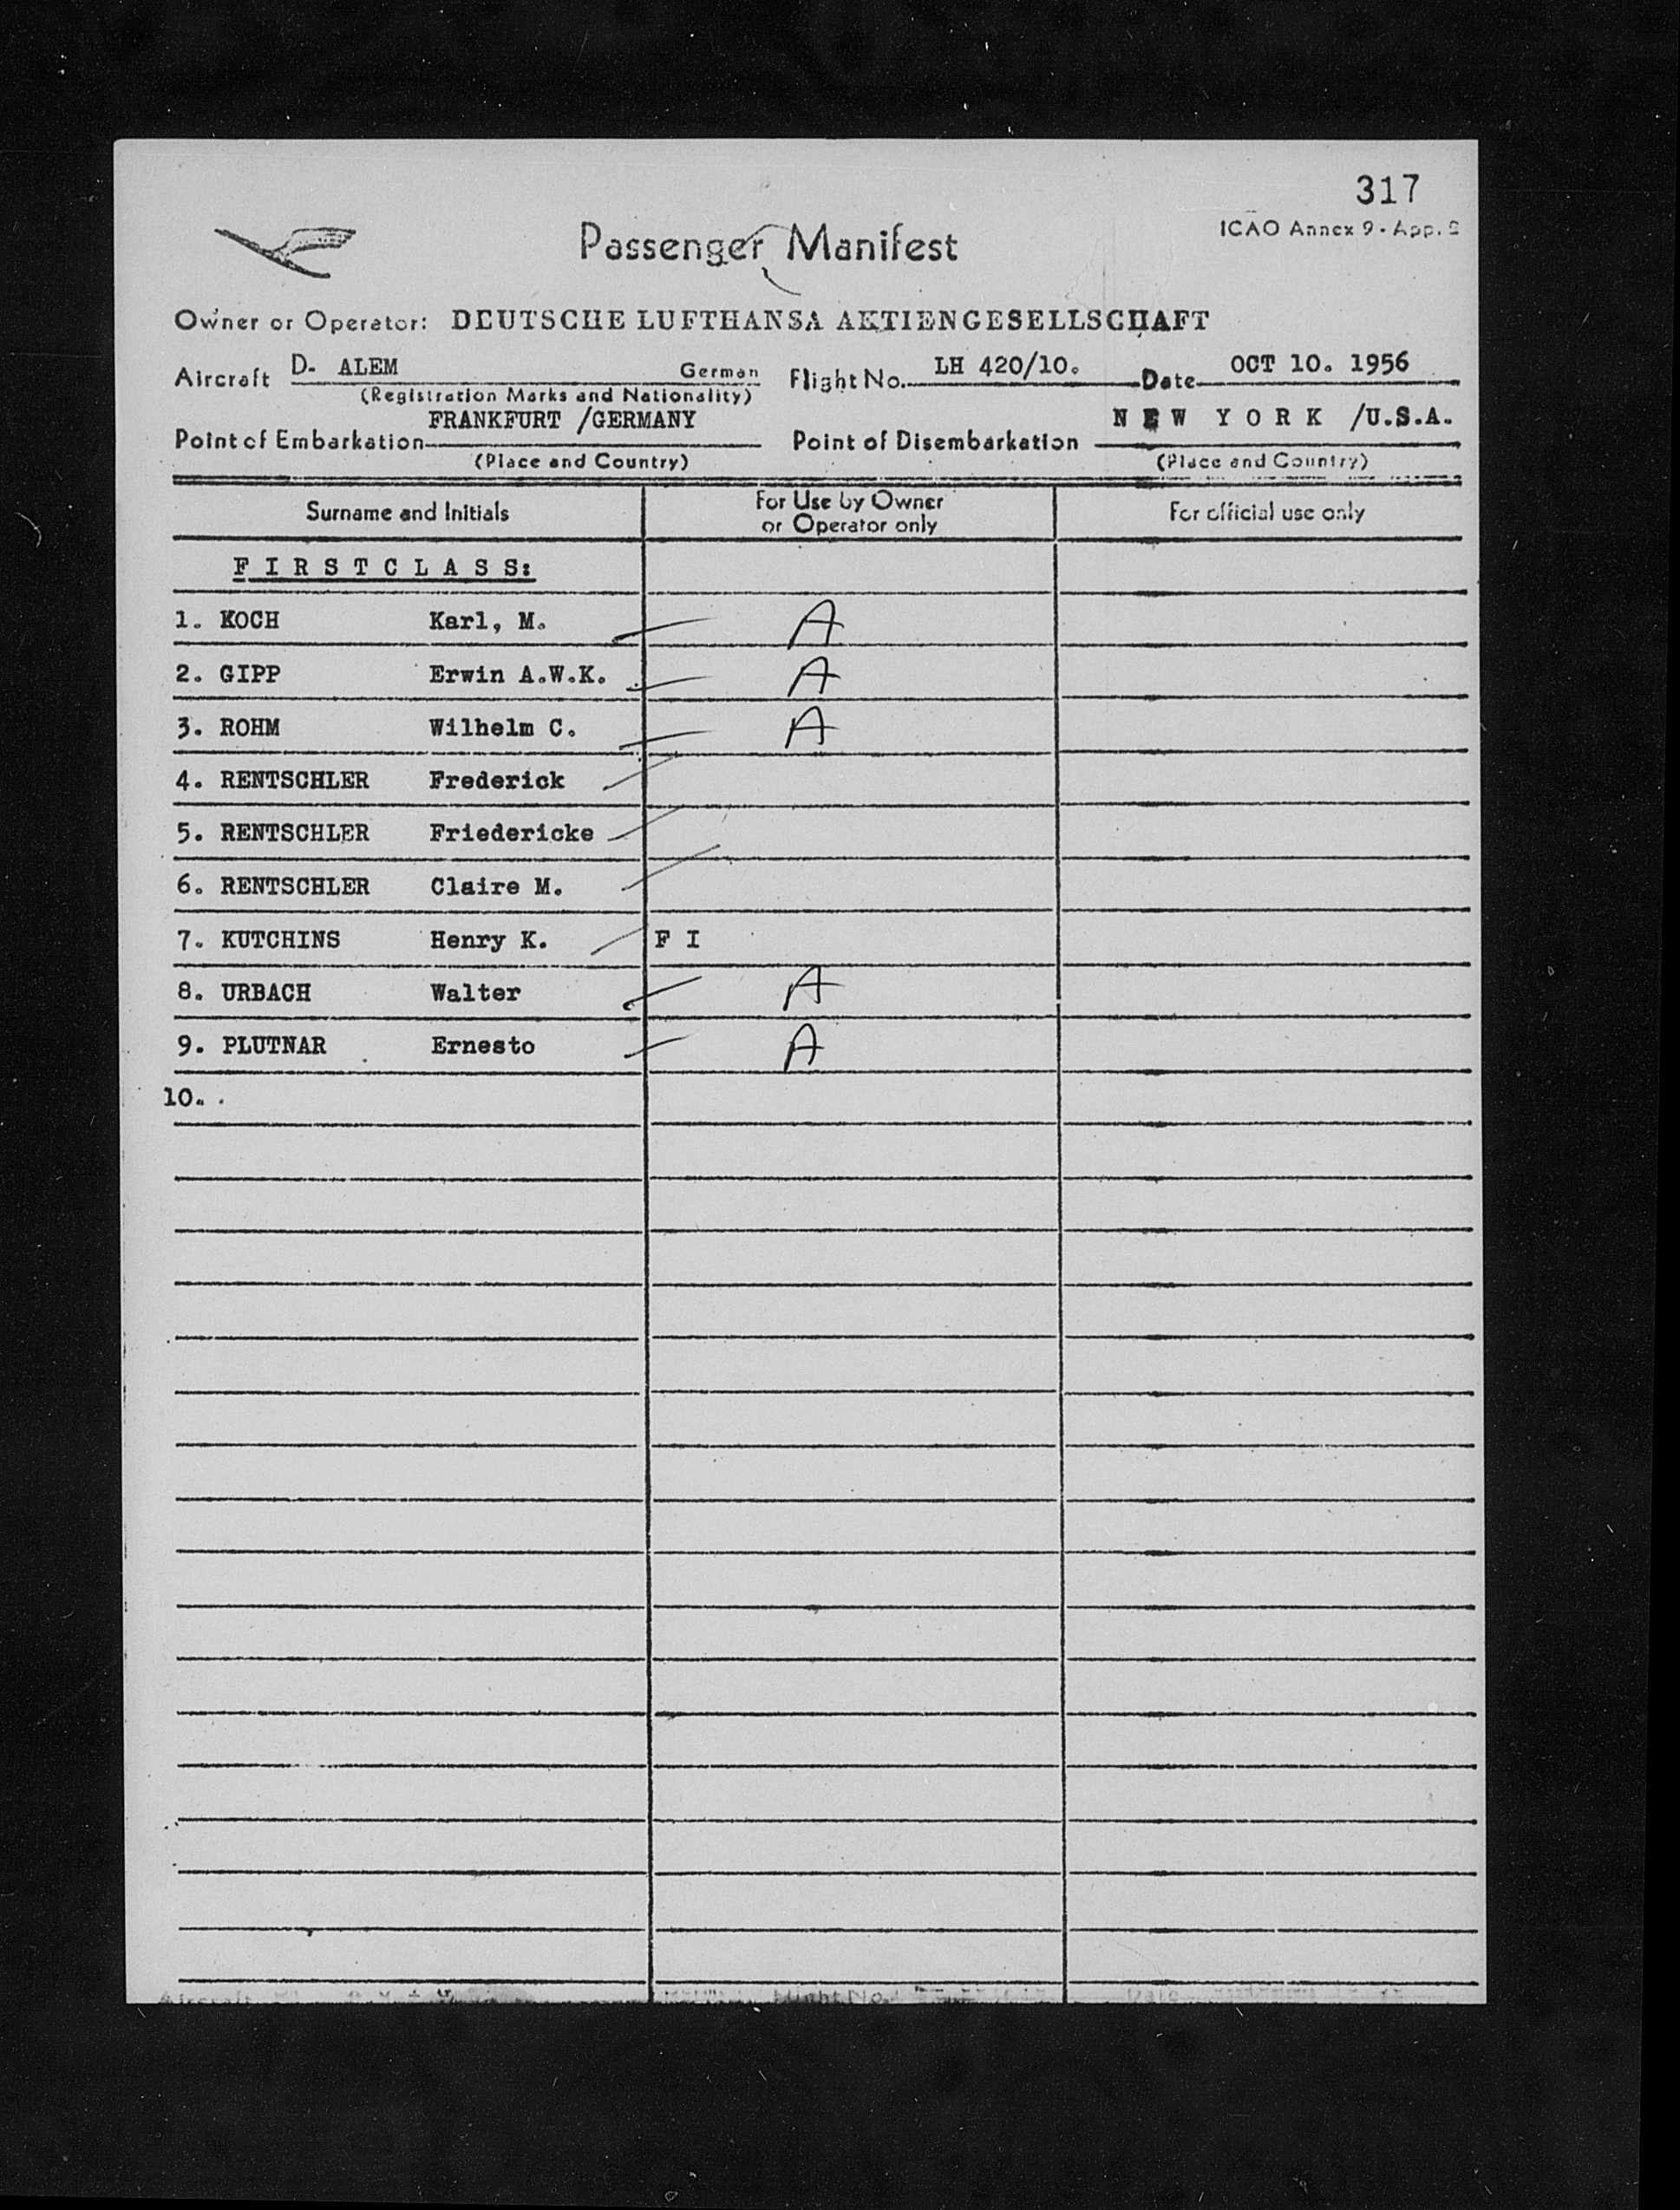 317
ICAO Annex 9 - App. 2
Passenger Manifest
Owner or Operator: DEUTSCHE LUFTHANSA AKTIENGESELLSCHAFT
Aircraft D- ALEM German Flight No. LH 420/10. Date OCT 10. 1956
(Registration Marks and Nationality)
FRANKFURT /GERMANY NEW YORK /U.S.A.
Point of Embarkation Point of Disembarkation
(Place and Country) (Place and Country)
Surname and Initials For Use by Owner or Operator only For official use only
F I R S T C L A S S:
1. KOCH Karl, M. A
2. GIPP Erwin A.W.K. A
3. ROHM Wilhelm C. A
4. RENTSCHLER Frederick
5. RENTSCHLER Friedericke
6. RENTSCHLER Claire M.
7. KUTCHINS Henry K. F I
8. URBACH Walter A
9. PLUTNAR Ernesto A
10.
Aircraft Flight No. Date